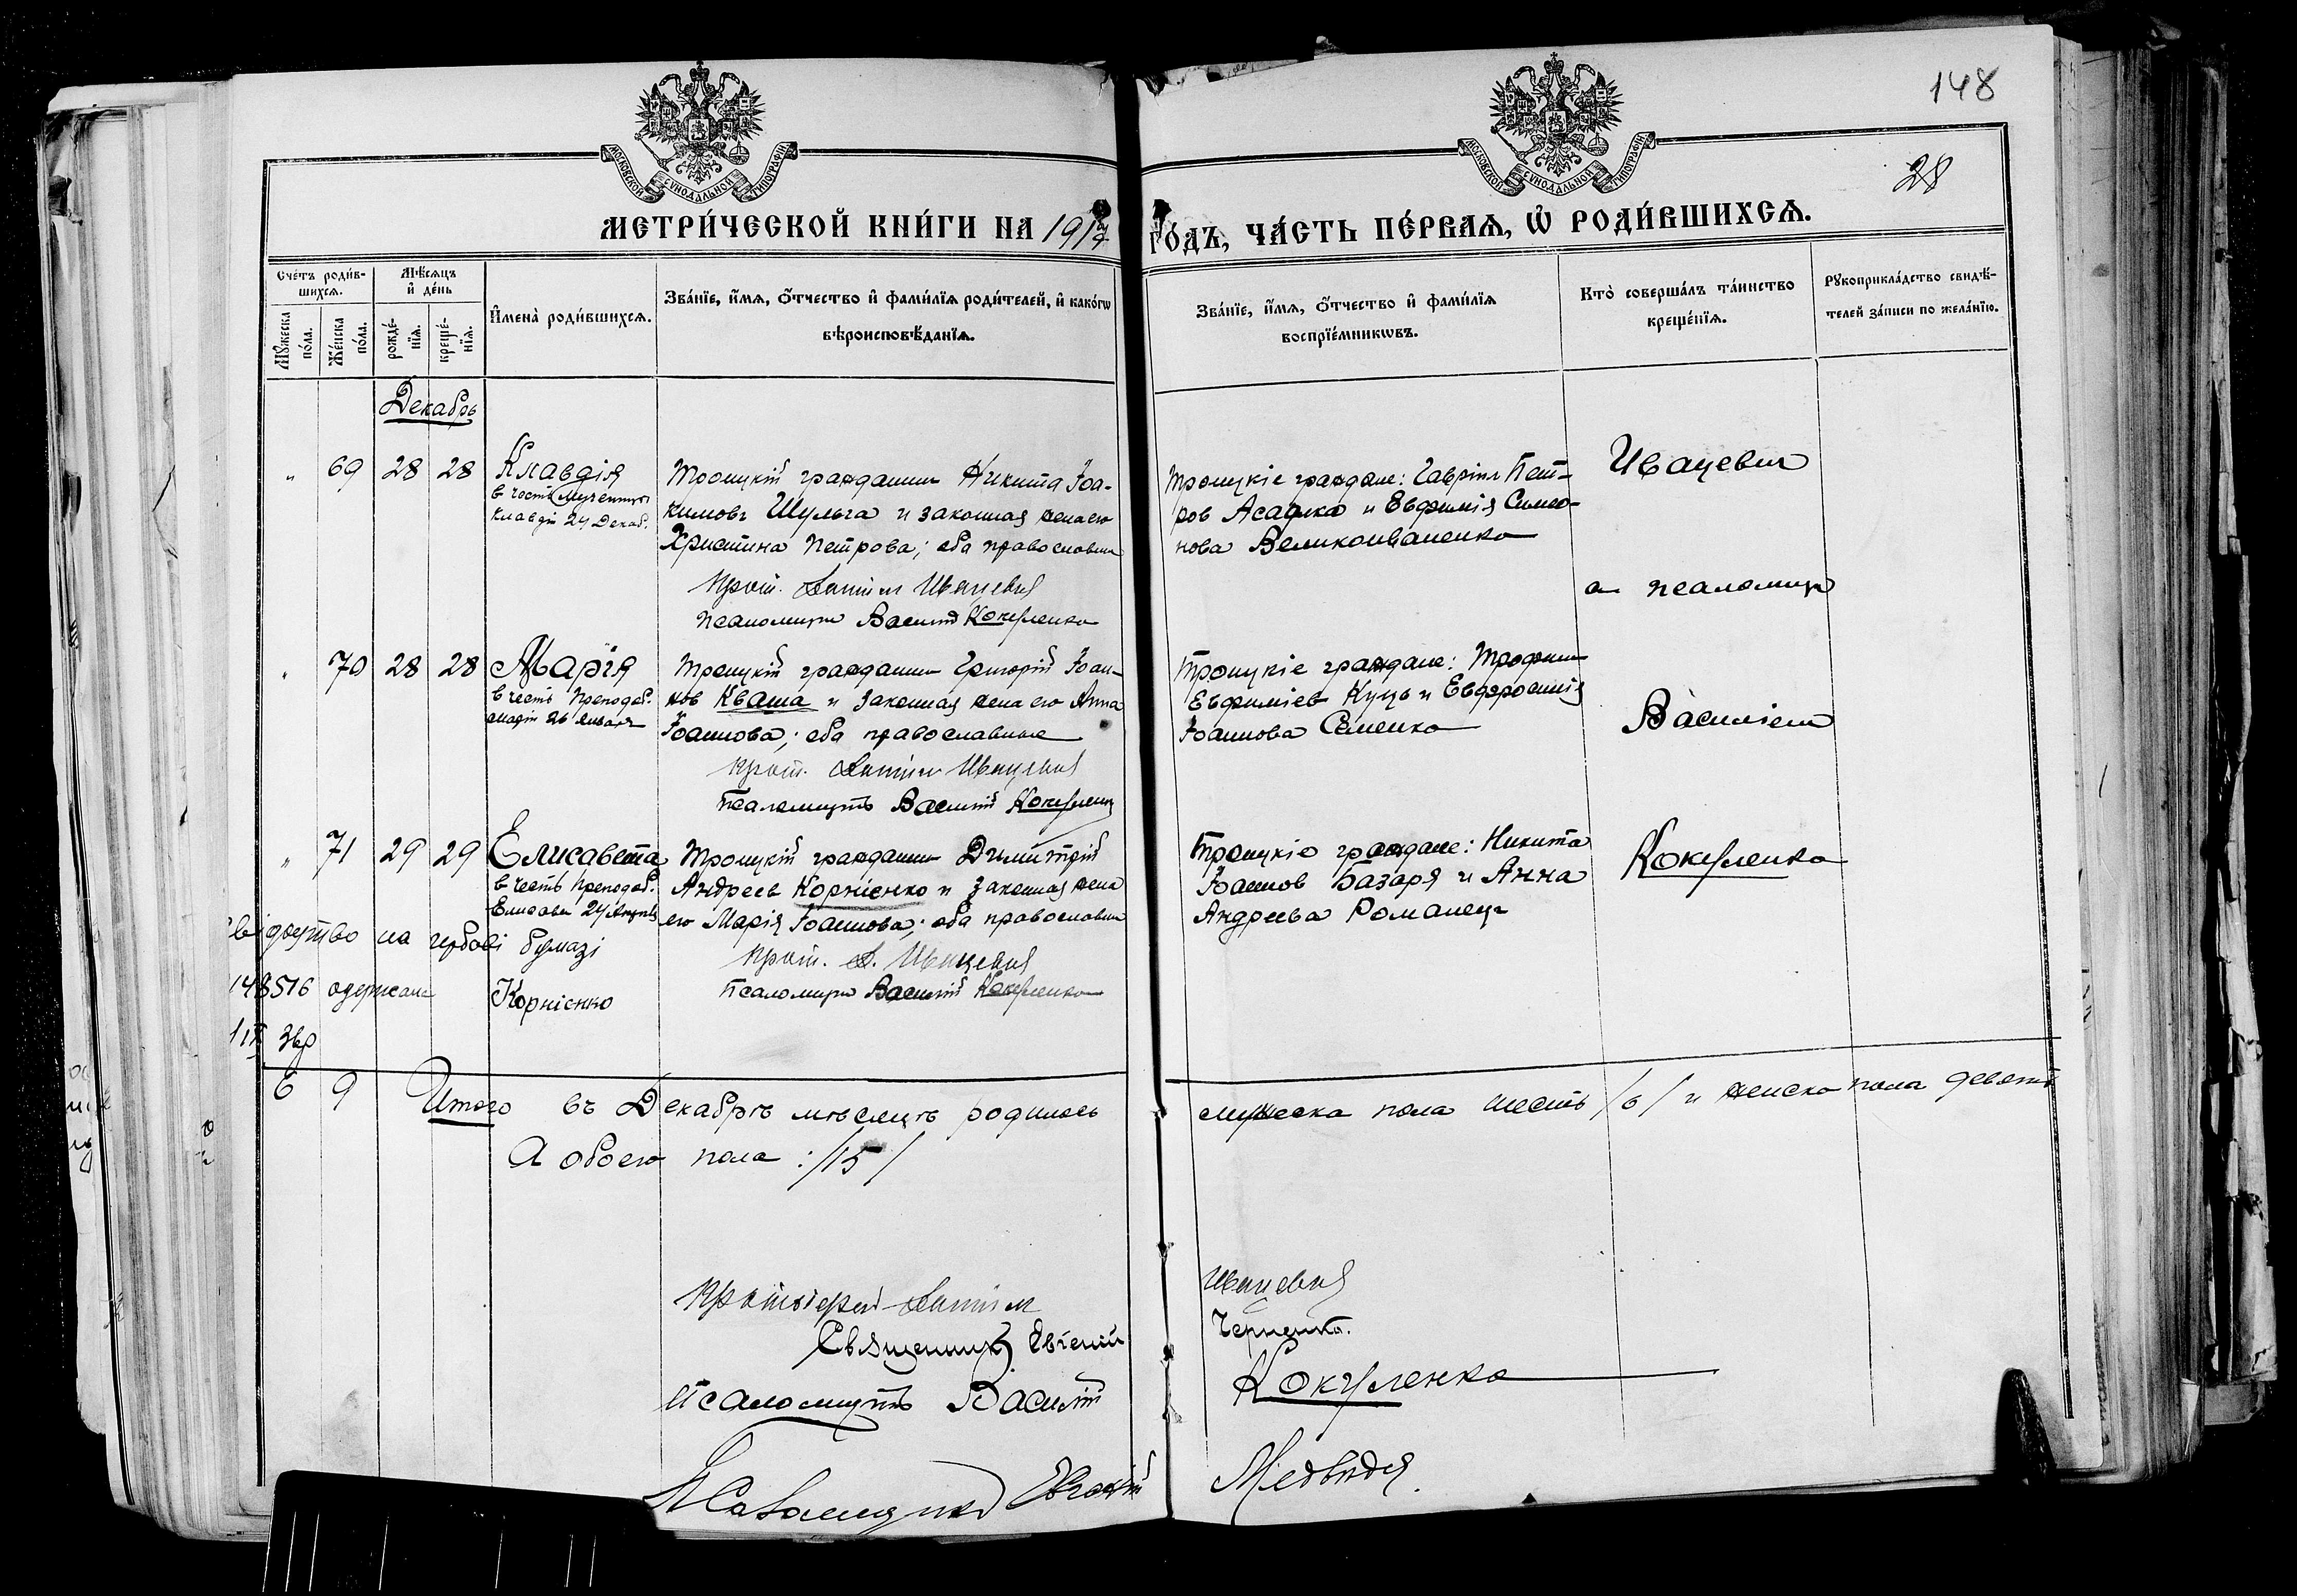 148
28
МОСКОВСКОЙ СУНОДАЛЬНОЙ ТИПОГРАФІИ
МОСКОВСКОЙ СУНОДАЛЬНОЙ ТИПОГРАФІИ
МЕТРИ́ЧЕСКОЙ КНИ́ГИ НА 1917 ГО́ДЪ, ЧА́СТЬ ПЕ́РВАѦ, Ѽ РОДИ́ВШИХСѦ.
Сче́тъ роди́в-
шихсѧ.
Мꙋ́жеска по́ла.
Же́нска по́ла.
Мѣ́сѧцъ
и҆ де́нь
рожде́-
нїѧ.
креще́-
нїѧ.
И҆мена̀ роди́вшихсѧ.
Зва́нїе, и҆́мѧ, ѻ҆́тчество и҆ фами́лїѧ роди́телей, и҆ како́гѡ
вѣроисповѣ́данїѧ.
Зва́нїе, и҆́мѧ, ѻ҆́тчество и҆ фами́лїѧ
воспрїе́мникѡвъ.
Кто̀ соверша́лъ та́инство
креще́нїѧ.
Рꙋкоприкла́дство свидѣ́-
телей за́писи по жела́нїю.
Декабрь
„ 69 28 28 Клавдія
в честь Мученицы
Клавдіи 24 Декаб.
Троицкій гражданин Никита Іоа-
кимовъ Шульга и законная жена его
Христина Петрова; оба православн
Прот. Антоній Ивацевич
Псаломщик Василій Кокуленко
Троицкіе граждане: Гавріил Пет-
ров Асадка и Евфимія Симео-
нова Великоиваненко
Ивацевич
а псаломщик
„ 70 28 28 Марія
в честь Преподоб.
Маріи 26 Января
Троицкій гражданин Григорій Іоан-
нов Кваша и законная жена его Анна
Іоаннова; оба православные
Прот. Антоній Ивацевич
Псаломщикъ Василій Кокуленко
Троицкіе граждане: Трофим
Евфиміев Куць и Евфросинія
Іоаннова Семенко
Василіем
„ 71 29 29 Елисавета
в честь Преподоб.
Елисавы 24 Апрѣля
Троицкій гражданин Дмитрій
Андреев Корніенко и законная жена
его Марія Іоаннова; оба православн
Прот. А. Ивацевич
Псаломщик Василій Кокуленко
Троицкіе граждане: Никита
Іоаннов Базаря и Анна
Андреева Романец
Кокуленко
свідоцтво на гербові бумазі
148516 одержана Корнієнко
6 9 Итого въ Декабрѣ мѣсяцѣ родилось мужеска пола шесть /6/ и женска пола девять
А обоего пола: /15/
Протоіерей Антоній Ивацевич
Священникъ Евгеній Черненко.
Псаломщикъ Василій Кокуленко
Псаломщикъ Евгеній Медвидя.